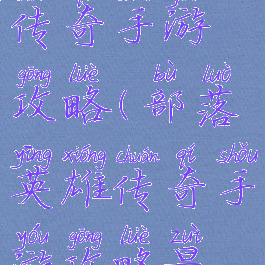 传奇手游
gōng lüè bù luò
攻略(部落
yīng xióng chuán qí shǒu
英雄传奇手
yóu gōng lüè zuì
游攻略最